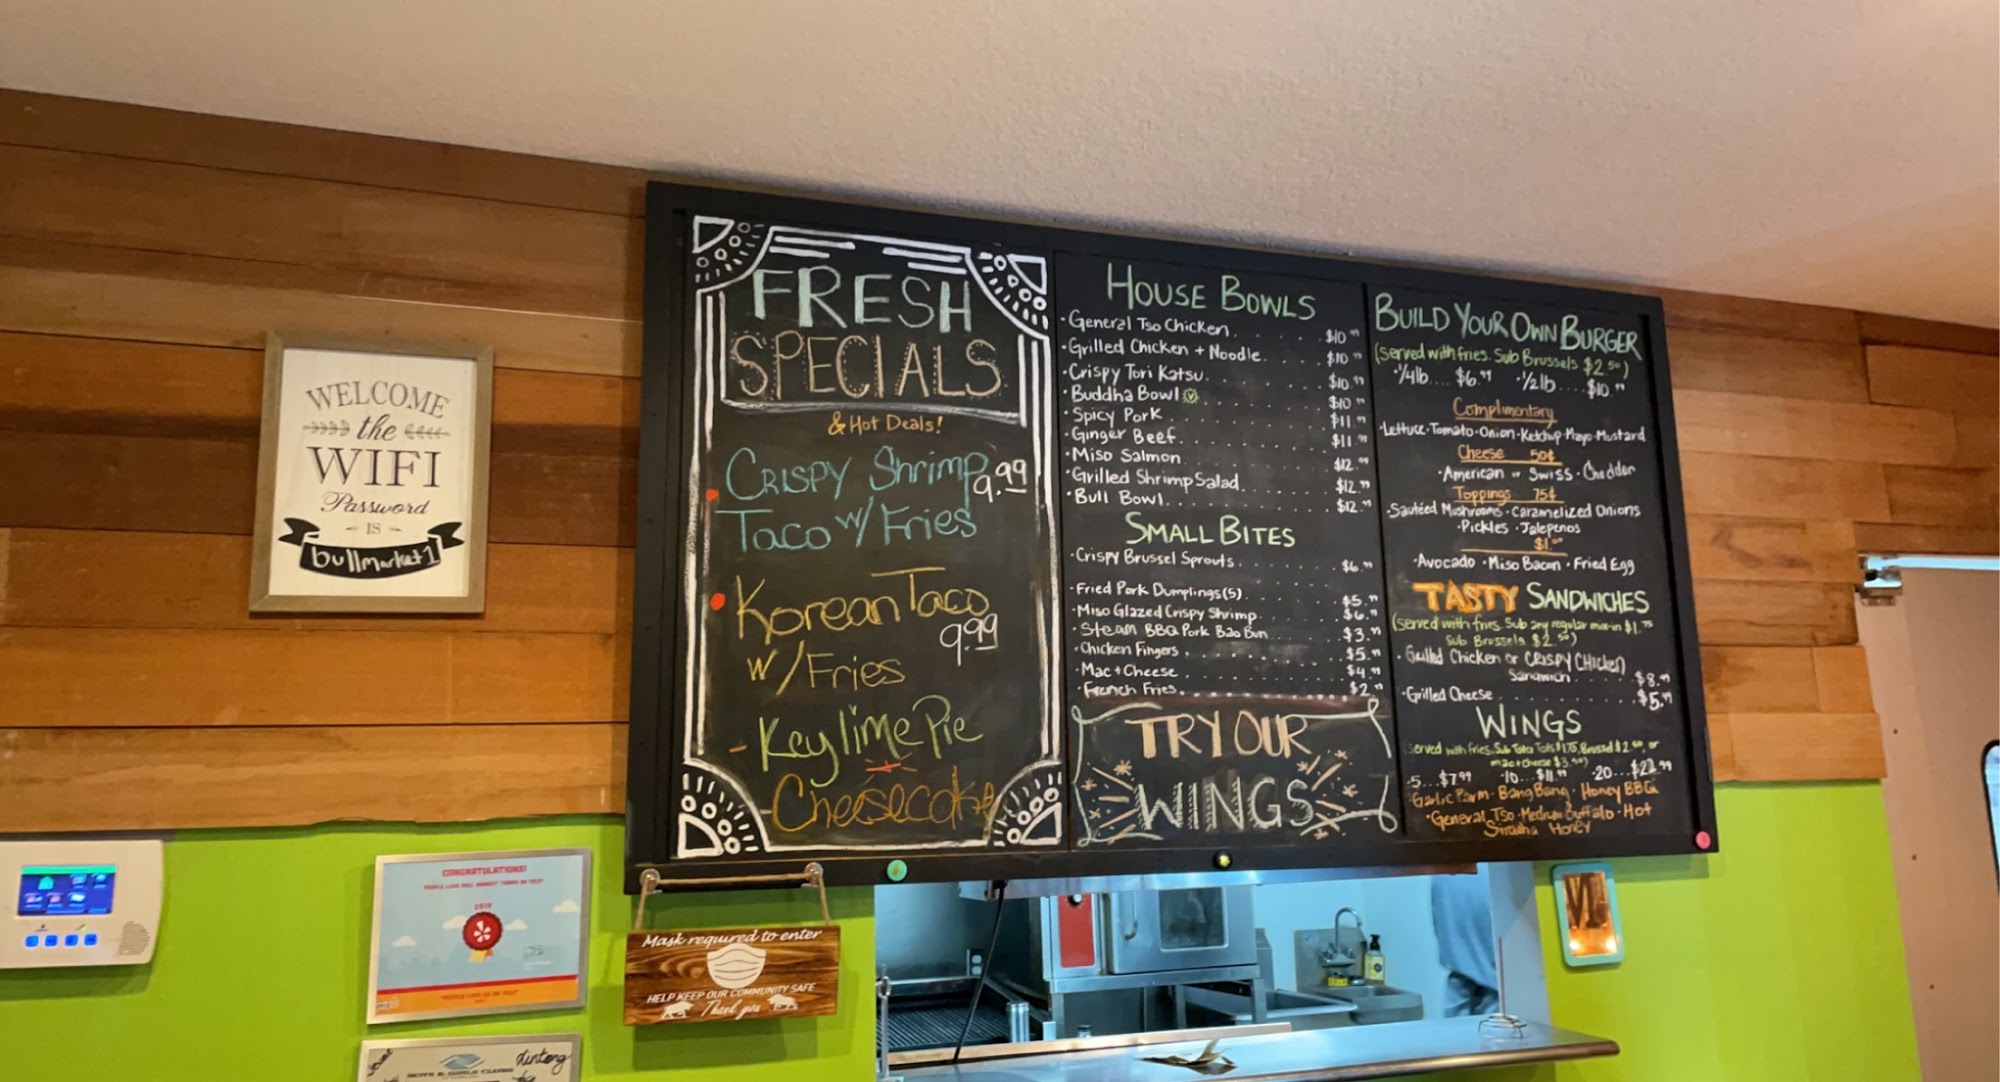 WELCOME
the
WIFI
Password
IS
bullmarket1
FRESH
SPECIALS
& Hot Deals!
CRISPY Shrimp 9.99
Taco w/ Fries
Korean Taco
9.99
w/ Fries
- Key lime Pie
- Cheesecake
HOUSE BOWLS
• General Tso Chicken . . . . $10.99
• Grilled Chicken + Noodle . . . . $10.99
• Crispy Tori Katsu . . . . $10.99
• Buddha Bowl V . . . . $10.99
• Spicy Pork . . . . $11.99
• Ginger Beef . . . . $11.99
• Miso Salmon . . . . $12.99
• Grilled Shrimp Salad . . . . $12.99
• Bull Bowl . . . . $12.99
SMALL BITES
• Crispy Brussel Sprouts . . . . $6.99
• Fried Pork Dumplings (5) . . . . $5.99
• Miso Glazed Crispy Shrimp . . . . $6.99
• Steam BBQ Pork Bao Bun . . . . $3.99
• Chicken Fingers . . . . $5.99
• Mac + Cheese . . . . $4.99
• French Fries . . . . $2.99
TRY OUR
WINGS
BUILD YOUR OWN BURGER
(served with fries. Sub Brussels $2.50)
• 1/4lb.... $6.99 • 1/2lb .... $10.99
Complimentary
• Lettuce • Tomato • Onion • Ketchup • Mayo • Mustard
Cheese 50¢
• American or Swiss • Cheddar
Toppings 75¢
• Sautéed Mushrooms • Caramelized Onions
• Pickles • Jalepenos
$1.00
• Avocado • Miso Bacon • Fried Egg
TASTY SANDWICHES
(served with fries. Sub any regular mix-in $1.75
Sub Brussels $2.50)
• Grilled Chicken or CRISPY CHICKEN
Sandwich . . . . $8.99
• Grilled Cheese . . . . $5.99
WINGS
(served with fries. Sub Tater Tots $1.75, Brussel $2.50, or
mac + cheese $3.50)
• 5... $7.99 • 10... $11.99 • 20... $22.99
• Garlic Parm • Bang Bang • Honey BBQ
• General Tso • Medium Buffalo • Hot
Siracha Honey
CONGRATULATIONS!
PEOPLE LOVE BULL MARKET TAMPA ON YELP!
"PEOPLE LOVE US ON YELP"
Mask required to enter
HELP KEEP OUR COMMUNITY SAFE
Thank you
BOYS & GIRLS CLUBS